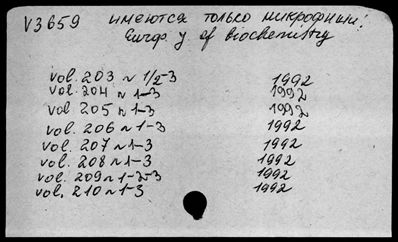 V3659 имеются только микрофиши!
Europ. J of biochemistry
vol. 203 N 1/2-3 1992
vol. 204 N 1-3 1992
vol 205 N 1-3 1992
vol. 206 N 1-3 1992
vol. 207 N 1-3 1992
vol. 208 N 1-3 1992
vol. 209 N 1-2-3 1992
vol. 210 N 1-3 1992